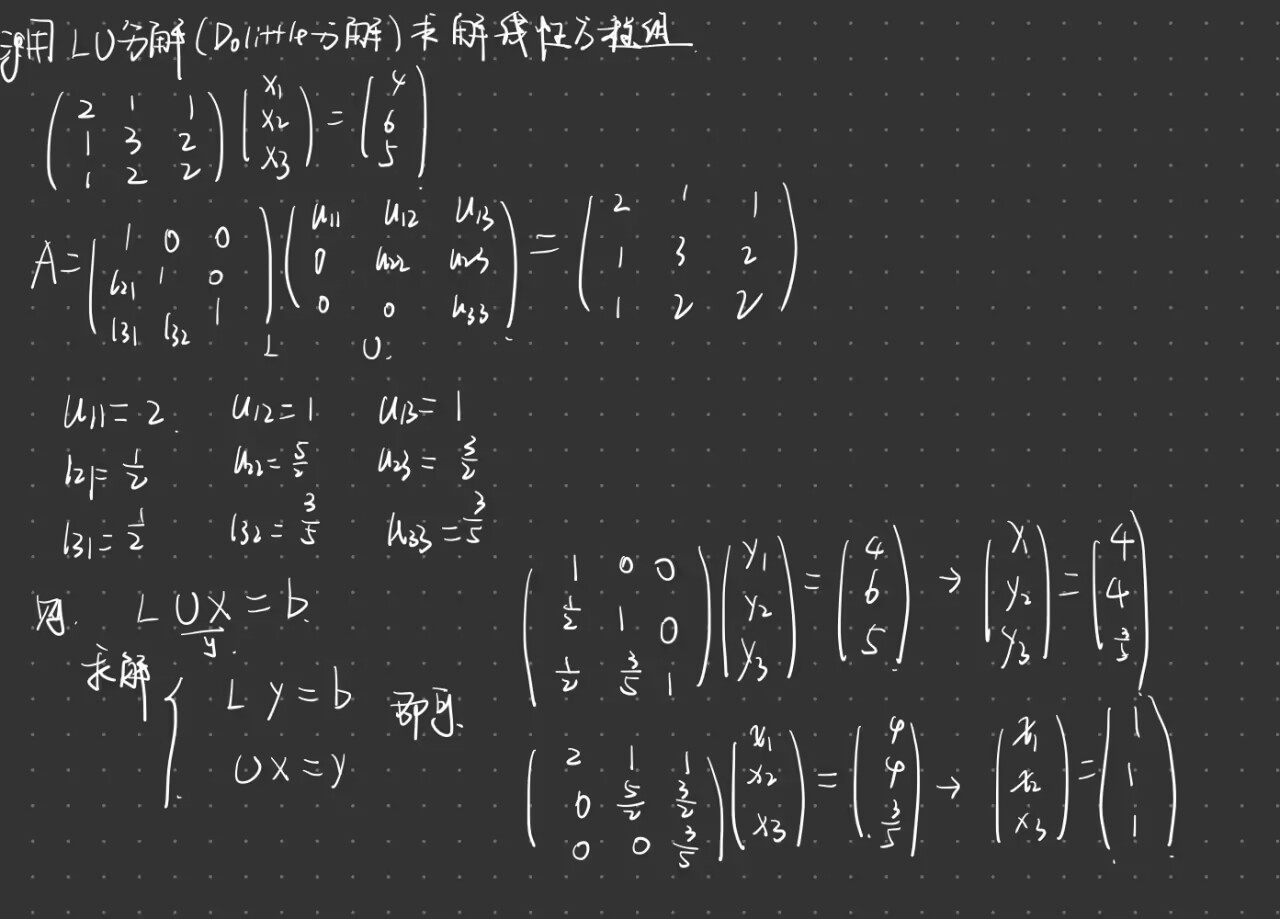 试用LU分解(Dolittle分解)求解线性方程组
(2 1 1; 1 3 2; 1 2 2)(x1; x2; x3)=(4; 6; 5)
A=(1 0 0; l21 1 0; l31 l32 1)(u11 u12 u13; 0 u22 u23; 0 0 u33)=(2 1 1; 1 3 2; 1 2 2)
L U.
u11=2. u12=1 u13=1
l21=1/2 u22=5/2 u23=3/2
l31=1/2 l32=3/5 u33=3/5
则. LUX=b.
y.
求解{ Ly=b
UX=y
即可.
(1 0 0; 1/2 1 0; 1/2 3/5 1)(y1; y2; y3)=(4; 6; 5)→(y1; y2; y3)=(4; 4; 3/5)
(2 1 1; 0 5/2 3/2; 0 0 3/5)(x1; x2; x3)=(4; 4; 3/5)→(x1; x2; x3)=(1; 1; 1)